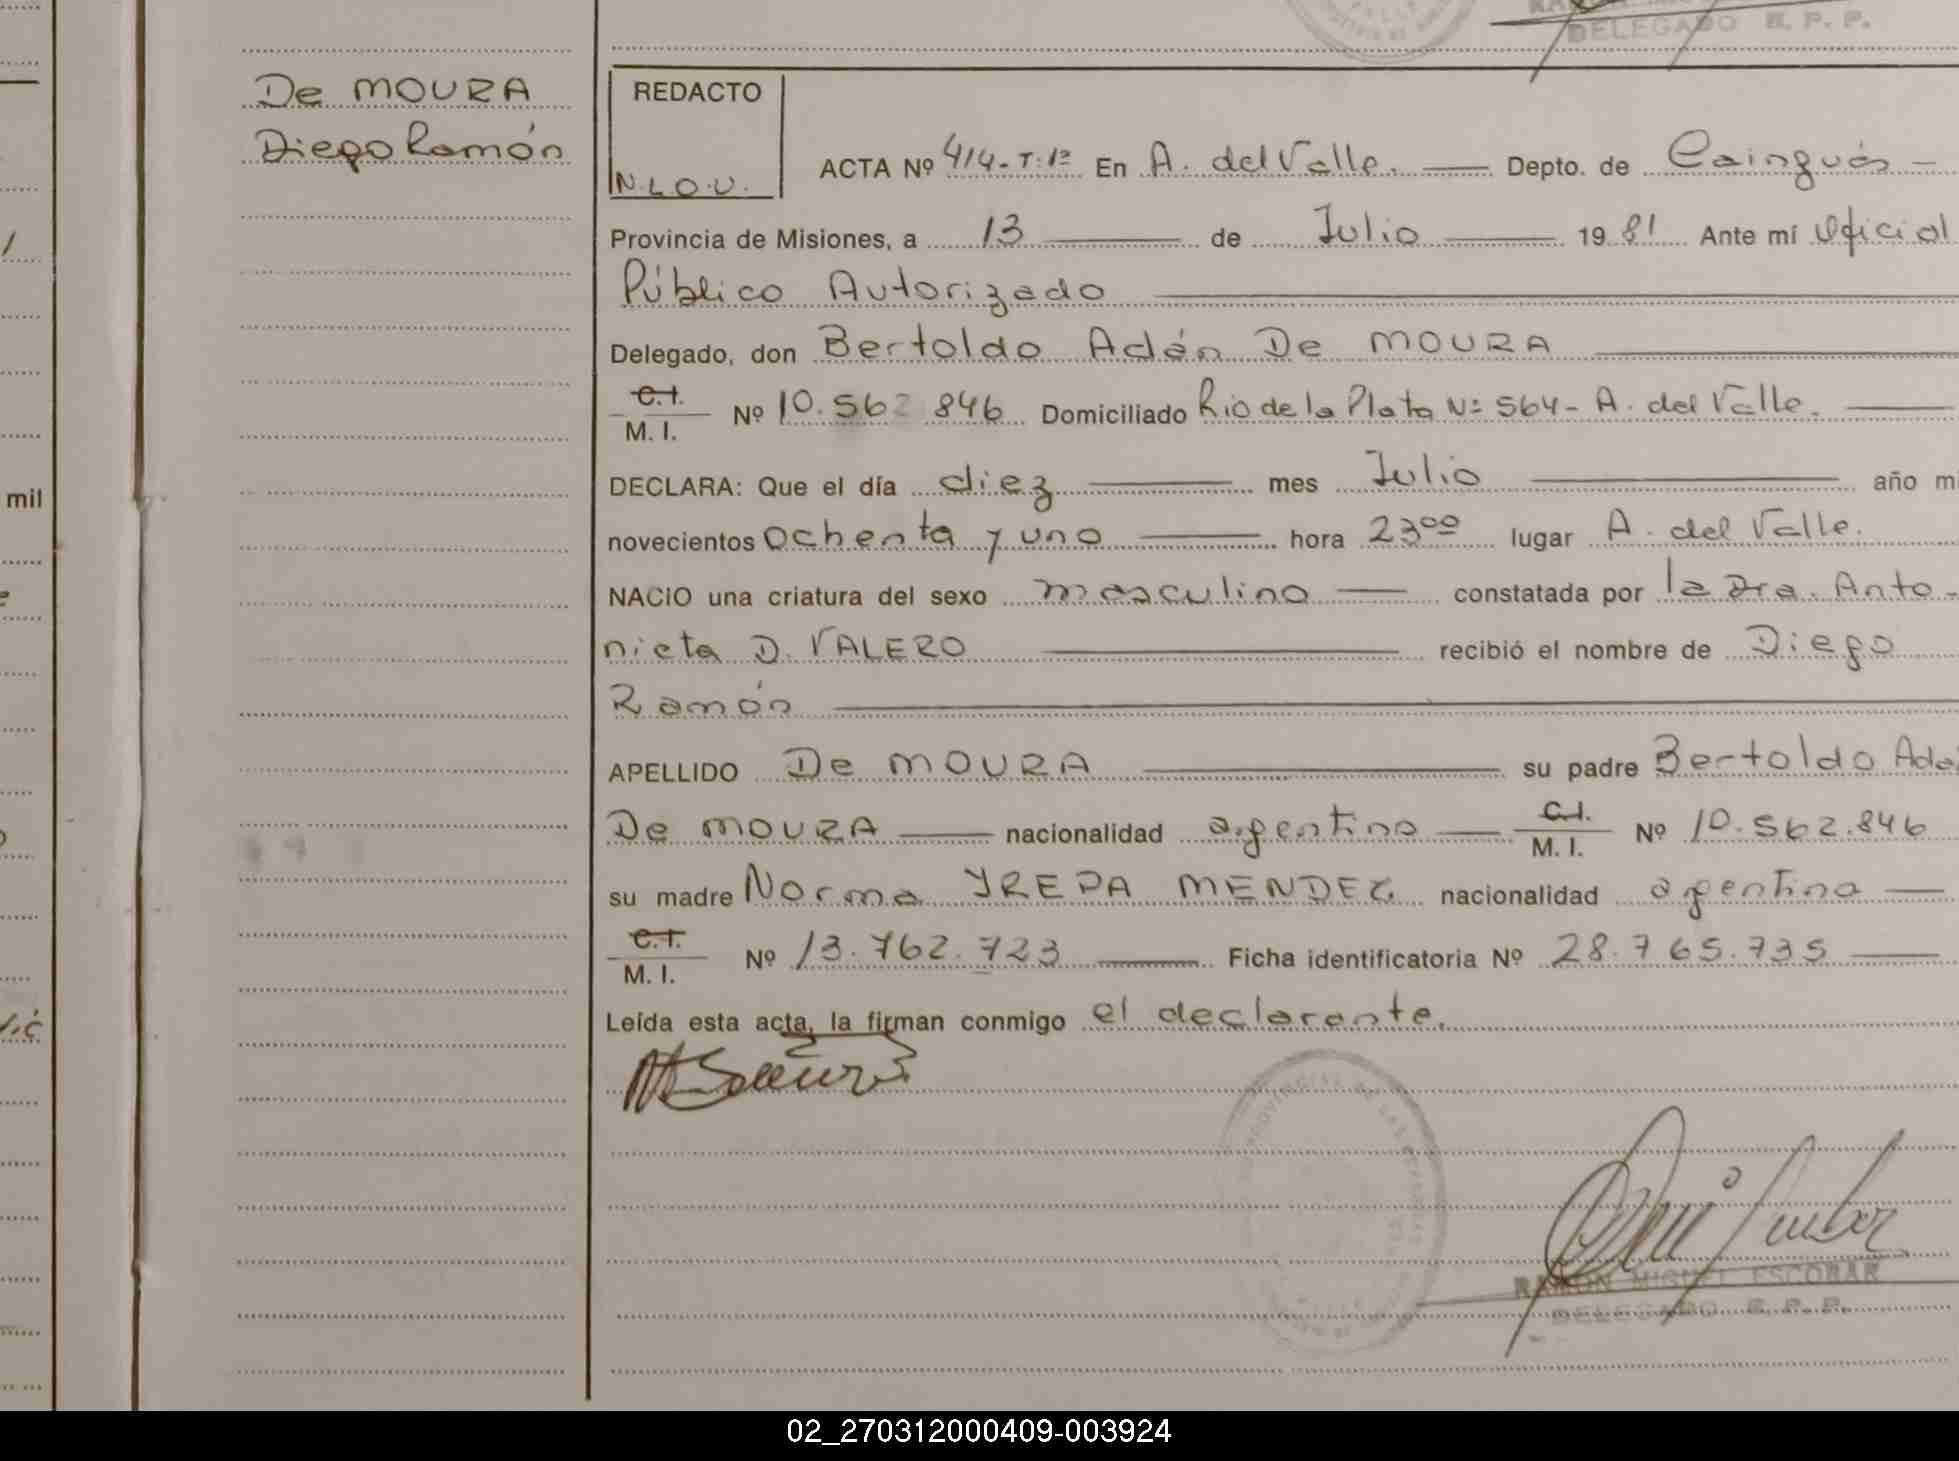 DELEGADO E. P. P.
De MOURA
Diego Ramón
REDACTO
N.L.O.U.
ACTA Nº 414-T:1º En A. del Valle. Depto. de Cainguás
Provincia de Misiones, a 13 de Julio 1981 Ante mí Oficial
Público Autorizado
Delegado, don Bertoldo Adán De MOURA
C.I. M. I. Nº 10.562 846 Domiciliado Rio de la Plata Nº 564- A. del Valle.
DECLARA: Que el día diez mes Julio año m
novecientos ochenta y uno hora 23⁰⁰ lugar A. del Valle.
NACIO una criatura del sexo masculino constatada por la Dra. Anto-
nieta D. VALERO recibió el nombre de Diego
Ramón
APELLIDO De MOURA su padre Bertoldo Ada
De MOURA nacionalidad argentino C.I. M. I. Nº 10.562.846
su madre Norma YREPA MENDEZ nacionalidad argentina
C.I. M. I. Nº 13.762.723 Ficha identificatoria Nº 28.765.735
Leída esta acta, la firman conmigo el declarante.
RAMON MIGUEL ESCOBAR
DELEGADO E. P. P.
mil
02_270312000409-003924